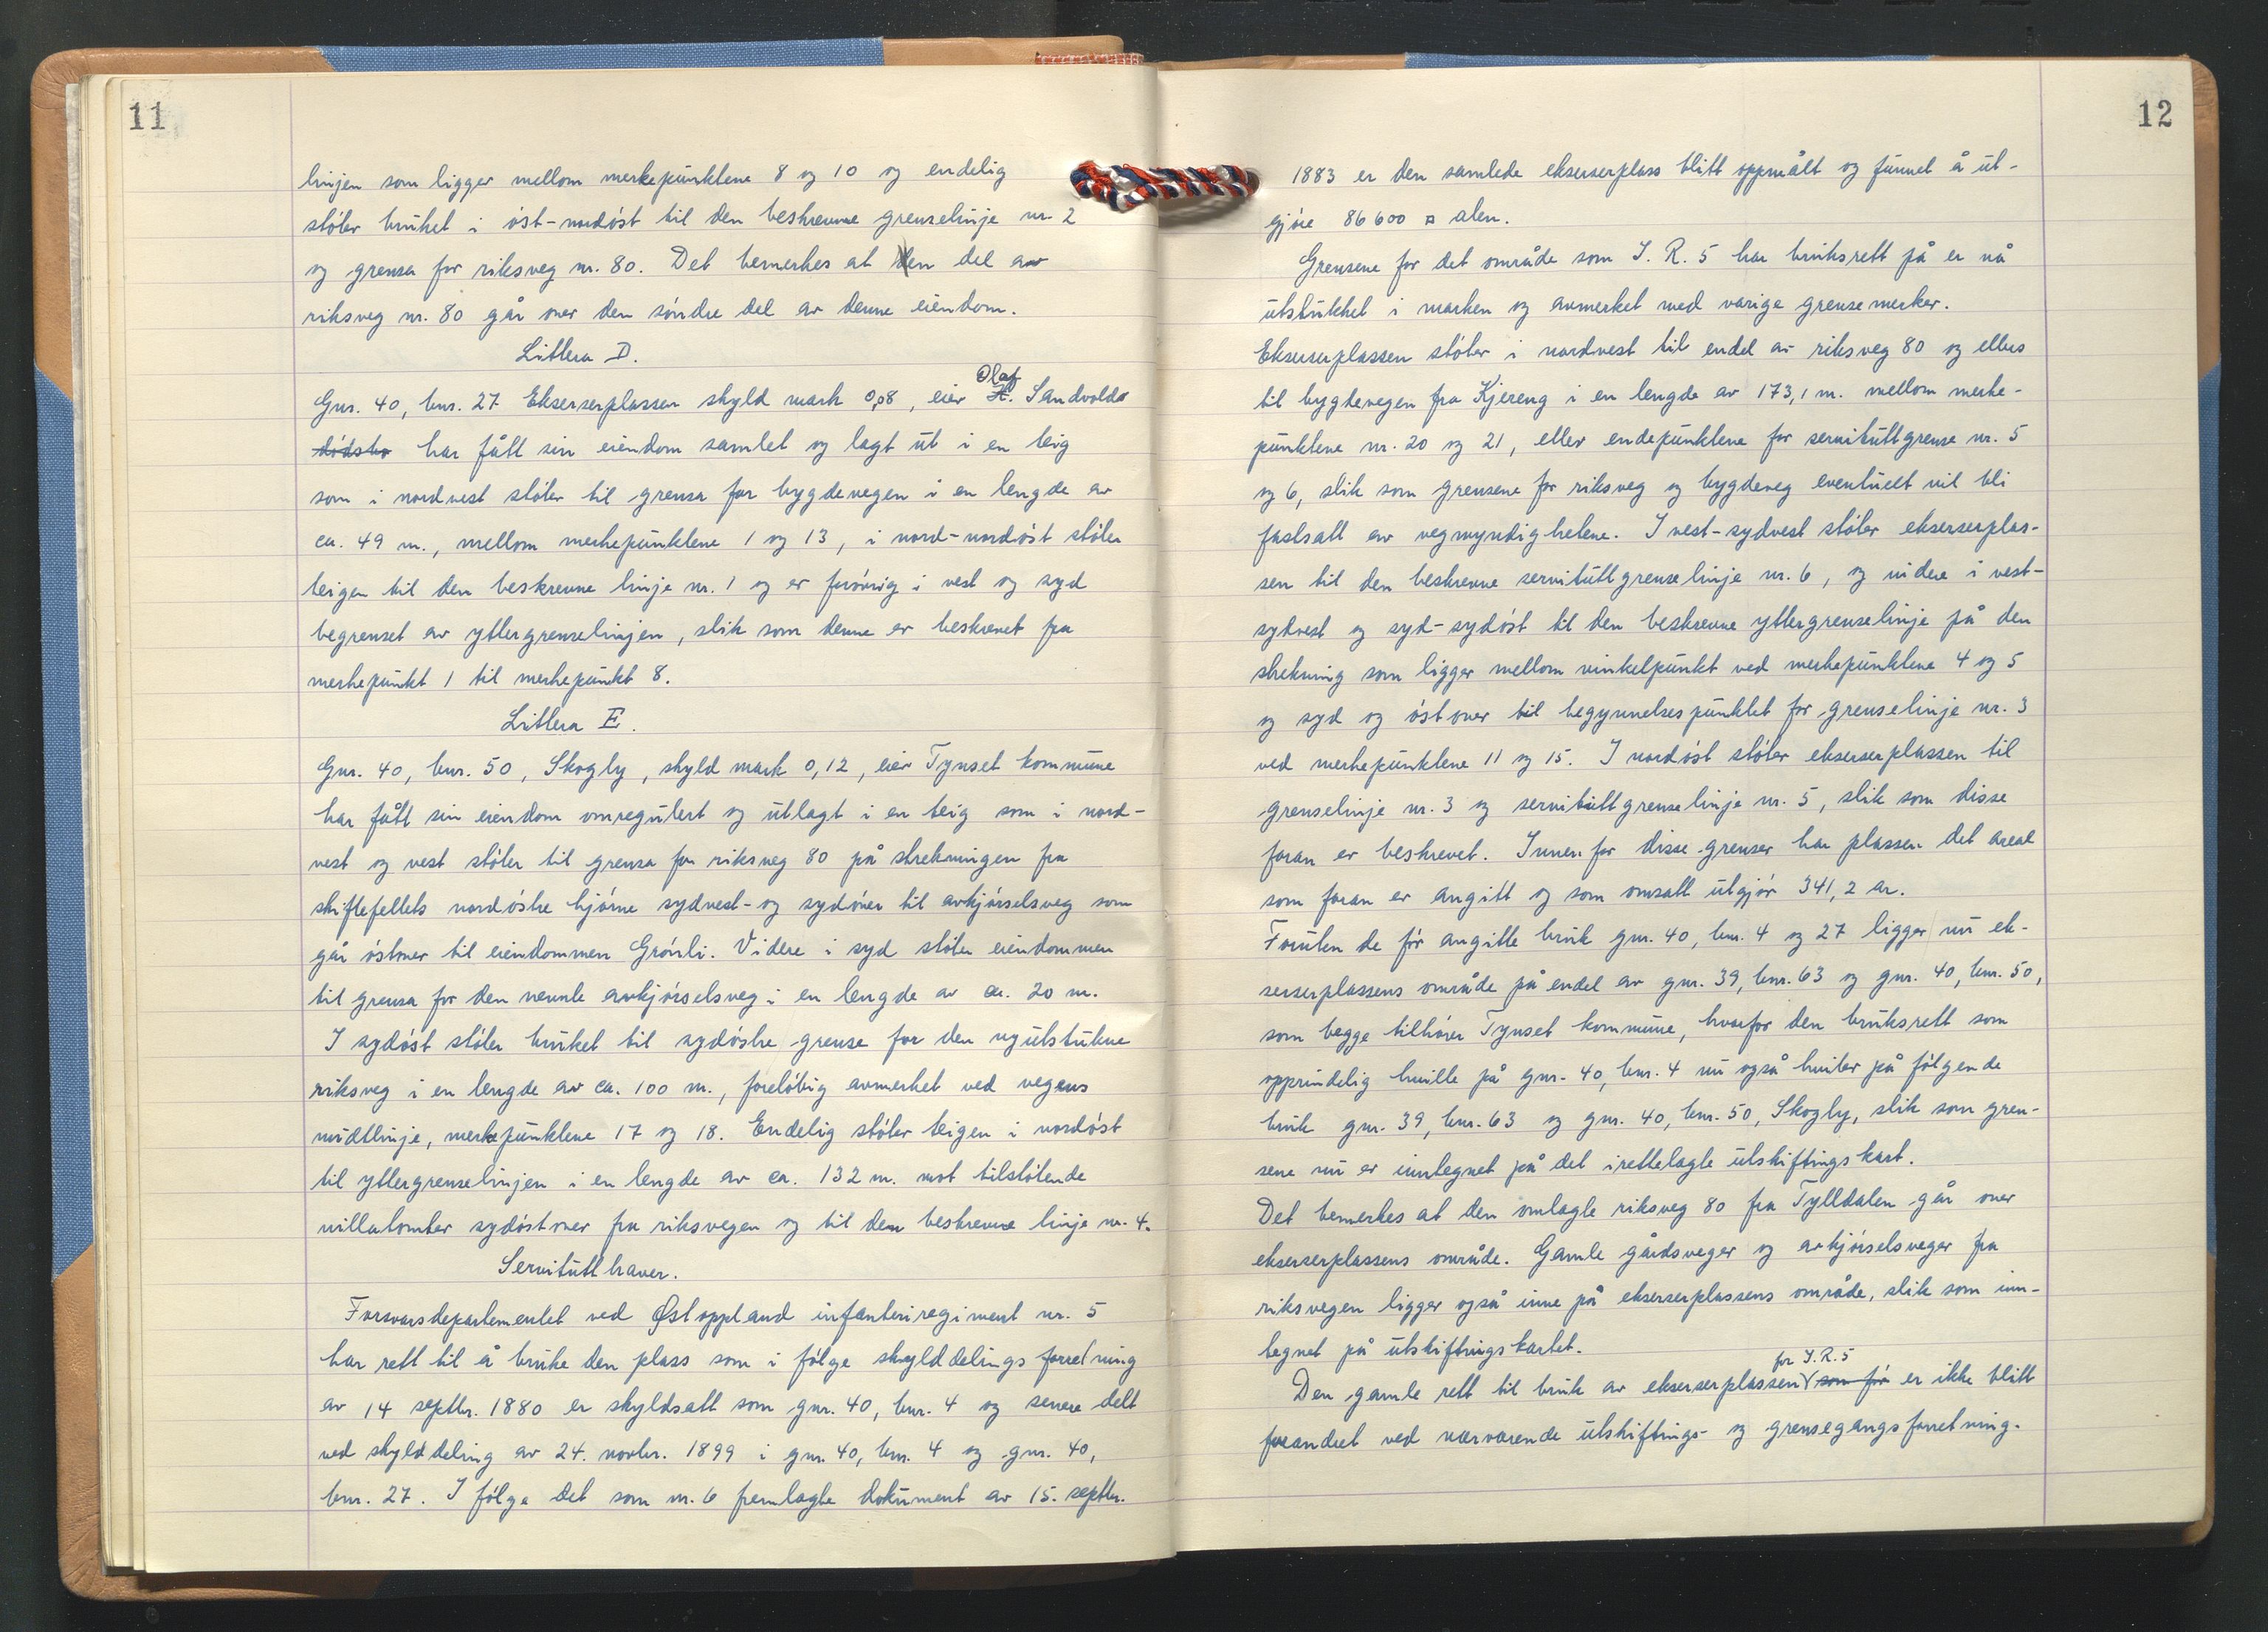 11
linjen som ligger mellom merkepunktene 8 og 10 og endelig
støter bruket i øst-nordøst til den beskrevne grenselinje nr. 2
og grensa for riksveg nr. 80. Det bemerkes at den del av
riksveg nr. 80 går over den søndre del av denne eiendom.
Littera D.
Gnr. 40, bnr. 27 Ekserserplassen skyld mark 0,08, eier H. Olaf Sandvolds
dødsbo har fått sin eiendom samlet og lagt ut i en teig
som i nordvest støter til grensa for bygdevegen i en lengde av
ca. 49 m., mellom merkepunktene 1 og 13, i nord-nordøst støter
teigen til den beskrevne linje nr. 1 og er forøvrig i vest og syd
begrenset av yttergrenselinjen, slik som denne er beskrevet fra
merkepunkt 1 til merkepunkt 8.
Littera E.
Gnr. 40, bnr. 50, Skogly, skyld mark 0,12, eier Tynset kommune
har fått sin eiendom omregulert og utlagt i en teig som i nord-
vest og vest støter til grensa for riksveg 80 på strekningen fra
skiftefeltets nordøstre hjørne sydvest- og sydover til avkjørselsveg som
går østover til eiendommen Grønli. Videre i syd støter eiendommen
til grensa for den nevnte avkjørselsveg i en lengde av ca. 20 m.
I sydøst støter bruket til sydøstre grense for den nyutstukne
riksveg i en lengde av ca. 100 m., foreløbig avmerket ved vegens
midtlinje, merkepunktene 17 og 18. Endelig støter teigen i nordøst
til yttergrenselinjen i en lengde av ca. 132 m. mot tilstøtende
villatomter sydøstover fra riksvegen og til den beskrevne linje nr. 4.
Servitutthaver.
Forsvarsdepartementet ved Østoppland infanteriregiment nr. 5
har rett til å bruke den plass som i følge skylddelingsforretning
av 14 septbr. 1880 er skyldsatt som gnr. 40, bnr. 4 og senere delt
ved skylddeling av 24. novbr. 1899 i gnr. 40, bnr. 4 og gnr. 40,
bnr. 27. I følge det som nr. 6 fremlagte dokument av 15. septbr.
12
1883 er den samlede ekserserplass blitt oppmålt og funnet å ut-
gjøre 86600 □ alen.
Grensene for det område som I. R. 5 har bruksrett på er nå
utstukket i marken og avmerket med varige grensemerker.
Ekserserplassen støter i nordvest til endel av riksveg 80 og ellers
til bygdevegen fra Kjereng i en lengde av 173,1 m. mellom merke-
punktene nr. 20 og 21, eller endepunktene for servituttgrense nr. 5
og 6, slik som grensene for riksveg og bygdeveg eventuelt vil bli
fastsatt av vegmyndighetene. I vest-sydvest støter ekserserplas-
sen til den beskrevne servituttgrenselinje nr. 6, og videre i vest-
sydvest og syd-sydøst til den beskrevne yttergrenselinje på den
strekning som ligger mellom vinkelpunkt ved merkepunktene 4 og 5
og syd og østover til begynnelsespunktet for grenselinje nr. 3
ved merkepunktene 11 og 15. I nordøst støter ekserserplassen til
grenselinje nr. 3 og servituttgrenselinje nr. 5, slik som disse
foran er beskrevet. Innenfor disse grenser har plassen det areal
som foran er angitt og som omsatt utgjør 341,2 ar.
Foruten de før angitte bruk gnr. 40, bnr. 4 og 27 ligger nu ek-
serserplassens område på endel av gnr. 39, bnr. 63 og gnr. 40, bnr. 50,
som begge tilhører Tynset kommune, hvorfor den bruksrett som
opprindelig hvilte på gnr. 40, bnr. 4 nu også hviler på følgende
bruk gnr. 39, bnr. 63 og gnr. 40, bnr. 50, Skogly, slik som gren-
sene nu er inntegnet på det irettelagte utskiftingskart.
Det bemerkes at den omlagte riksveg 80 fra Tylldalen går over
ekserserplassens område. Gamle gårdsveger og avkjørselsveger fra
riksvegen ligger også inne på ekserserplassens område, slik som inn-
tegnet på utskiftingskartet.
Den gamle rett til bruk av ekserserplassen for I.R.5 som før er ikke blitt
forandret ved nærværende utskiftings- og grensegangsforretning.